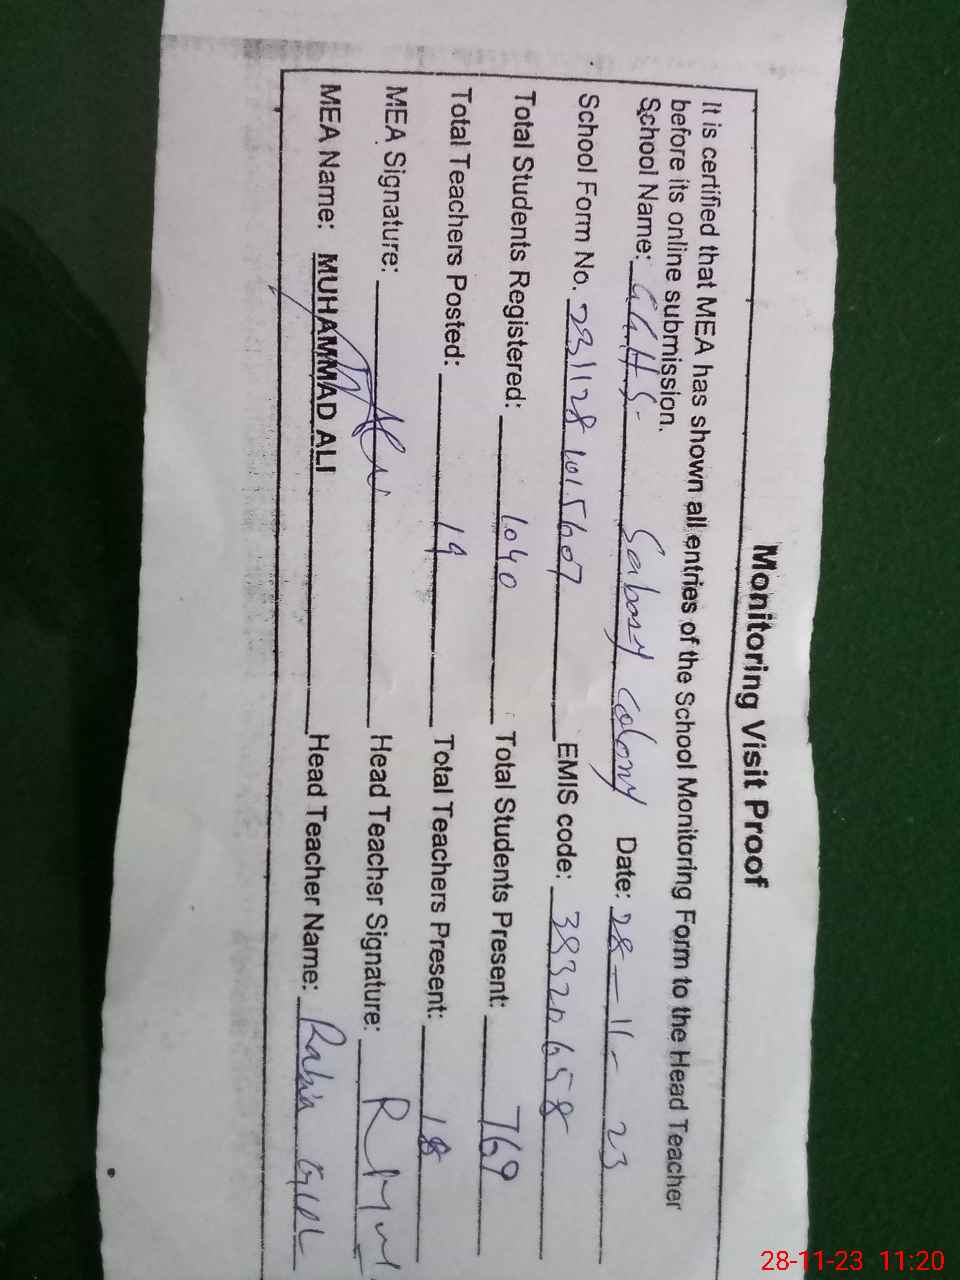 Monitoring Visit Proof
It is certified that MEA has shown all entries of the School Monitoring Form to the Head Teacher
before its online submission.
School Name: GGHS. colony Date: 28-11-23
School Form No. 2311281015607 EMIS code: 38320658
Total Students Registered: 1040 Total Students Present: 769
Total Teachers Posted: 19 Total Teachers Present: 18
MEA Signature: Head Teacher Signature:
MEA Name: MUHAMMAD ALI Head Teacher Name: Rabia Gill
28-11-23 11:20